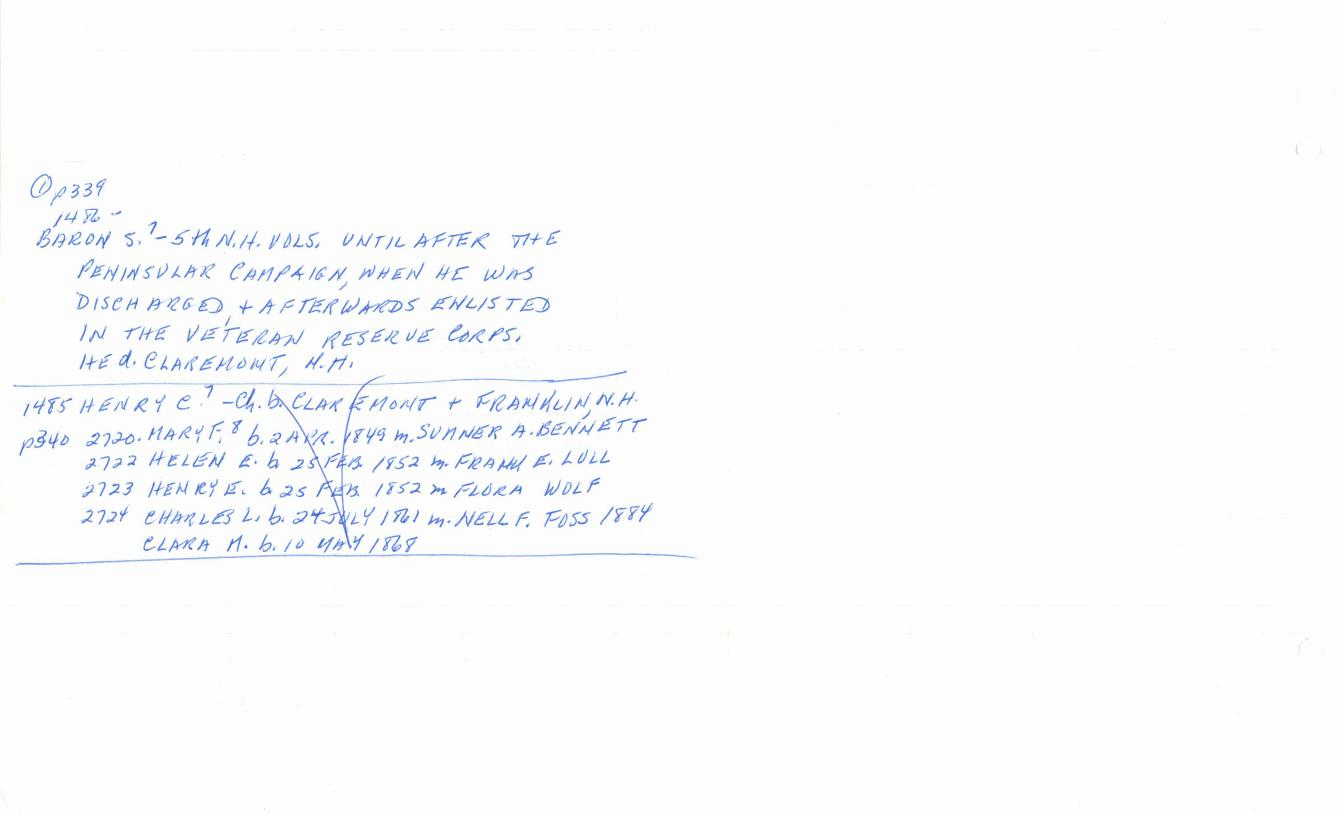 ① p339
1486 -
BARON S.⁷ - 5th N.H. VOLS. UNTIL AFTER THE
PENINSULAR CAMPAIGN, WHEN HE WAS
DISCHARGED, + AFTERWARDS ENLISTED
IN THE VETERAN RESERVE CORPS.
HE d. CLAREMONT, N.H.
1485 HENRY C.⁷ - Ch. b. CLAREMONT + FRANKLIN, N.H.
p340 2720. MARY F.⁸ b. 2 APR. 1849 m. SUMNER A. BENNETT
2722 HELEN E. b 25 FEB. 1852 m. FRANK E. LULL
2723 HENRY E. b 25 FEB. 1852 m FLORA WOLF
2724 CHARLES L. b. 24 JULY 1861 m. NELL F. FOSS 1884
CLARA M. b. 10 MAY 1868